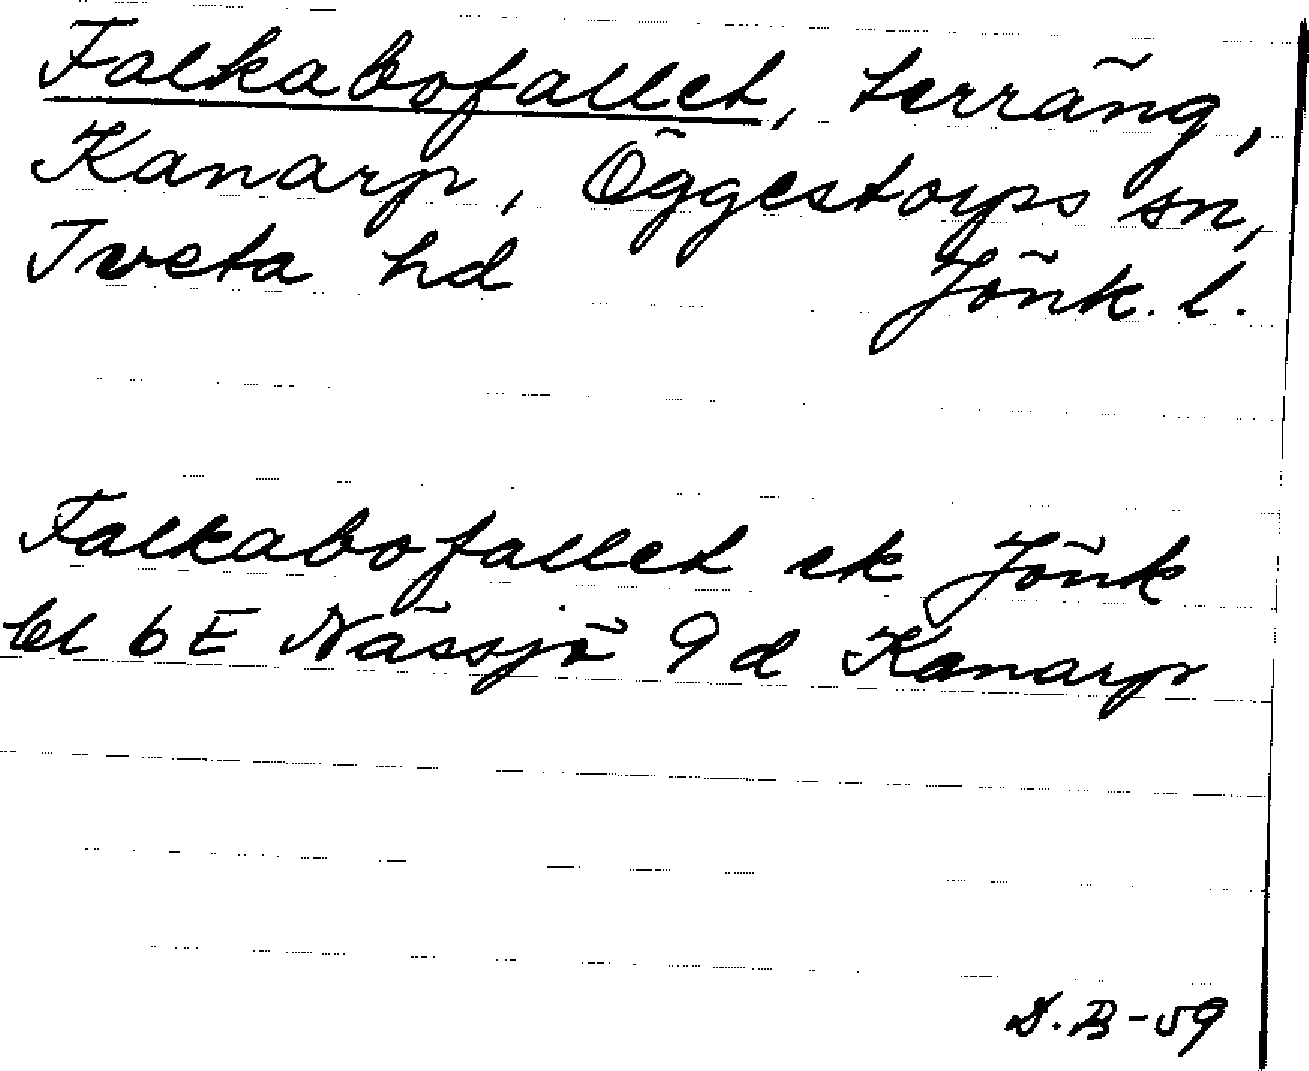 Falkabofallet, terräng,
Kanarp, Öggestorps sn,
Tveta hd Jönk. l.
Falkabofallet ek Jönk
bl 6E Nässjö 9d Kanarp
S.B-59